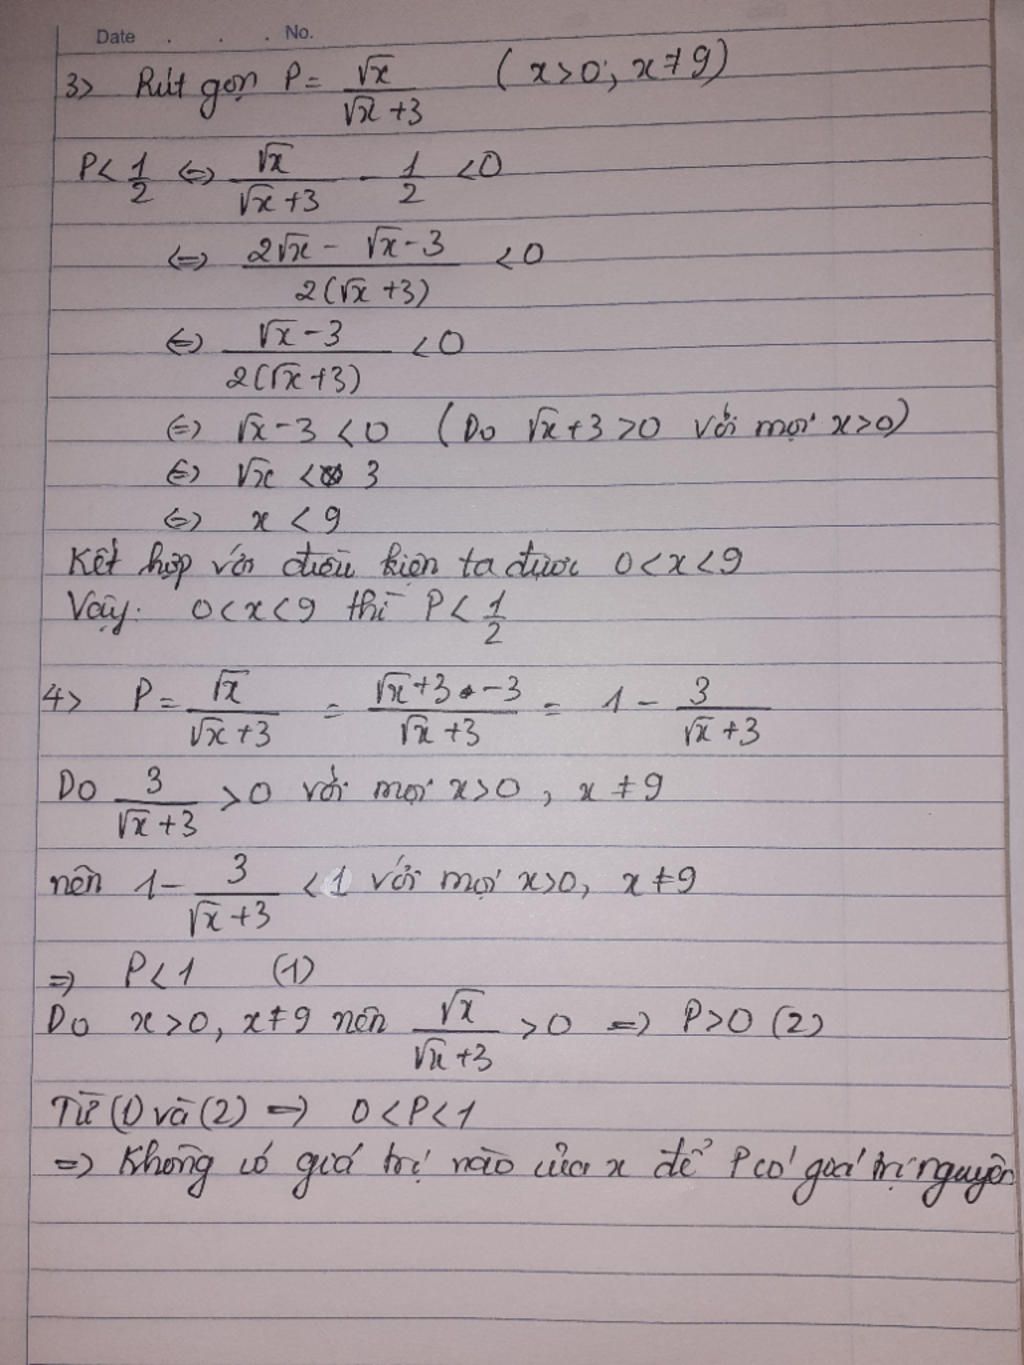 Date . . . No.
3> Rút gọn P = √x/(√x+3) (x>0; x≠9)
P< 1/2 <=> √x/(√x+3) - 1/2 <0
<=> (2√x - √x-3)/(2(√x+3)) <0
<=> (√x-3)/(2(√x+3)) <0
<=> √x-3 <0 (Do √x+3 >0 với mọi x>0)
<=> √x < 3
<=> x < 9
Kết hợp với điều kiện ta được 0<x<9
Vậy: 0<x<9 thì P< 1/2
4> P = √x/(√x+3) = (√x+3-3)/(√x+3) = 1 - 3/(√x+3)
Do 3/(√x+3) >0 với mọi x>0, x≠9
nên 1- 3/(√x+3) <1 với mọi x>0, x≠9
=> P<1 (1)
Do x>0, x≠9 nên √x/(√x+3) >0 => P>0 (2)
Từ (1) và (2) => 0<P<1
=> Không có giá trị nào của x để P có giá trị nguyên